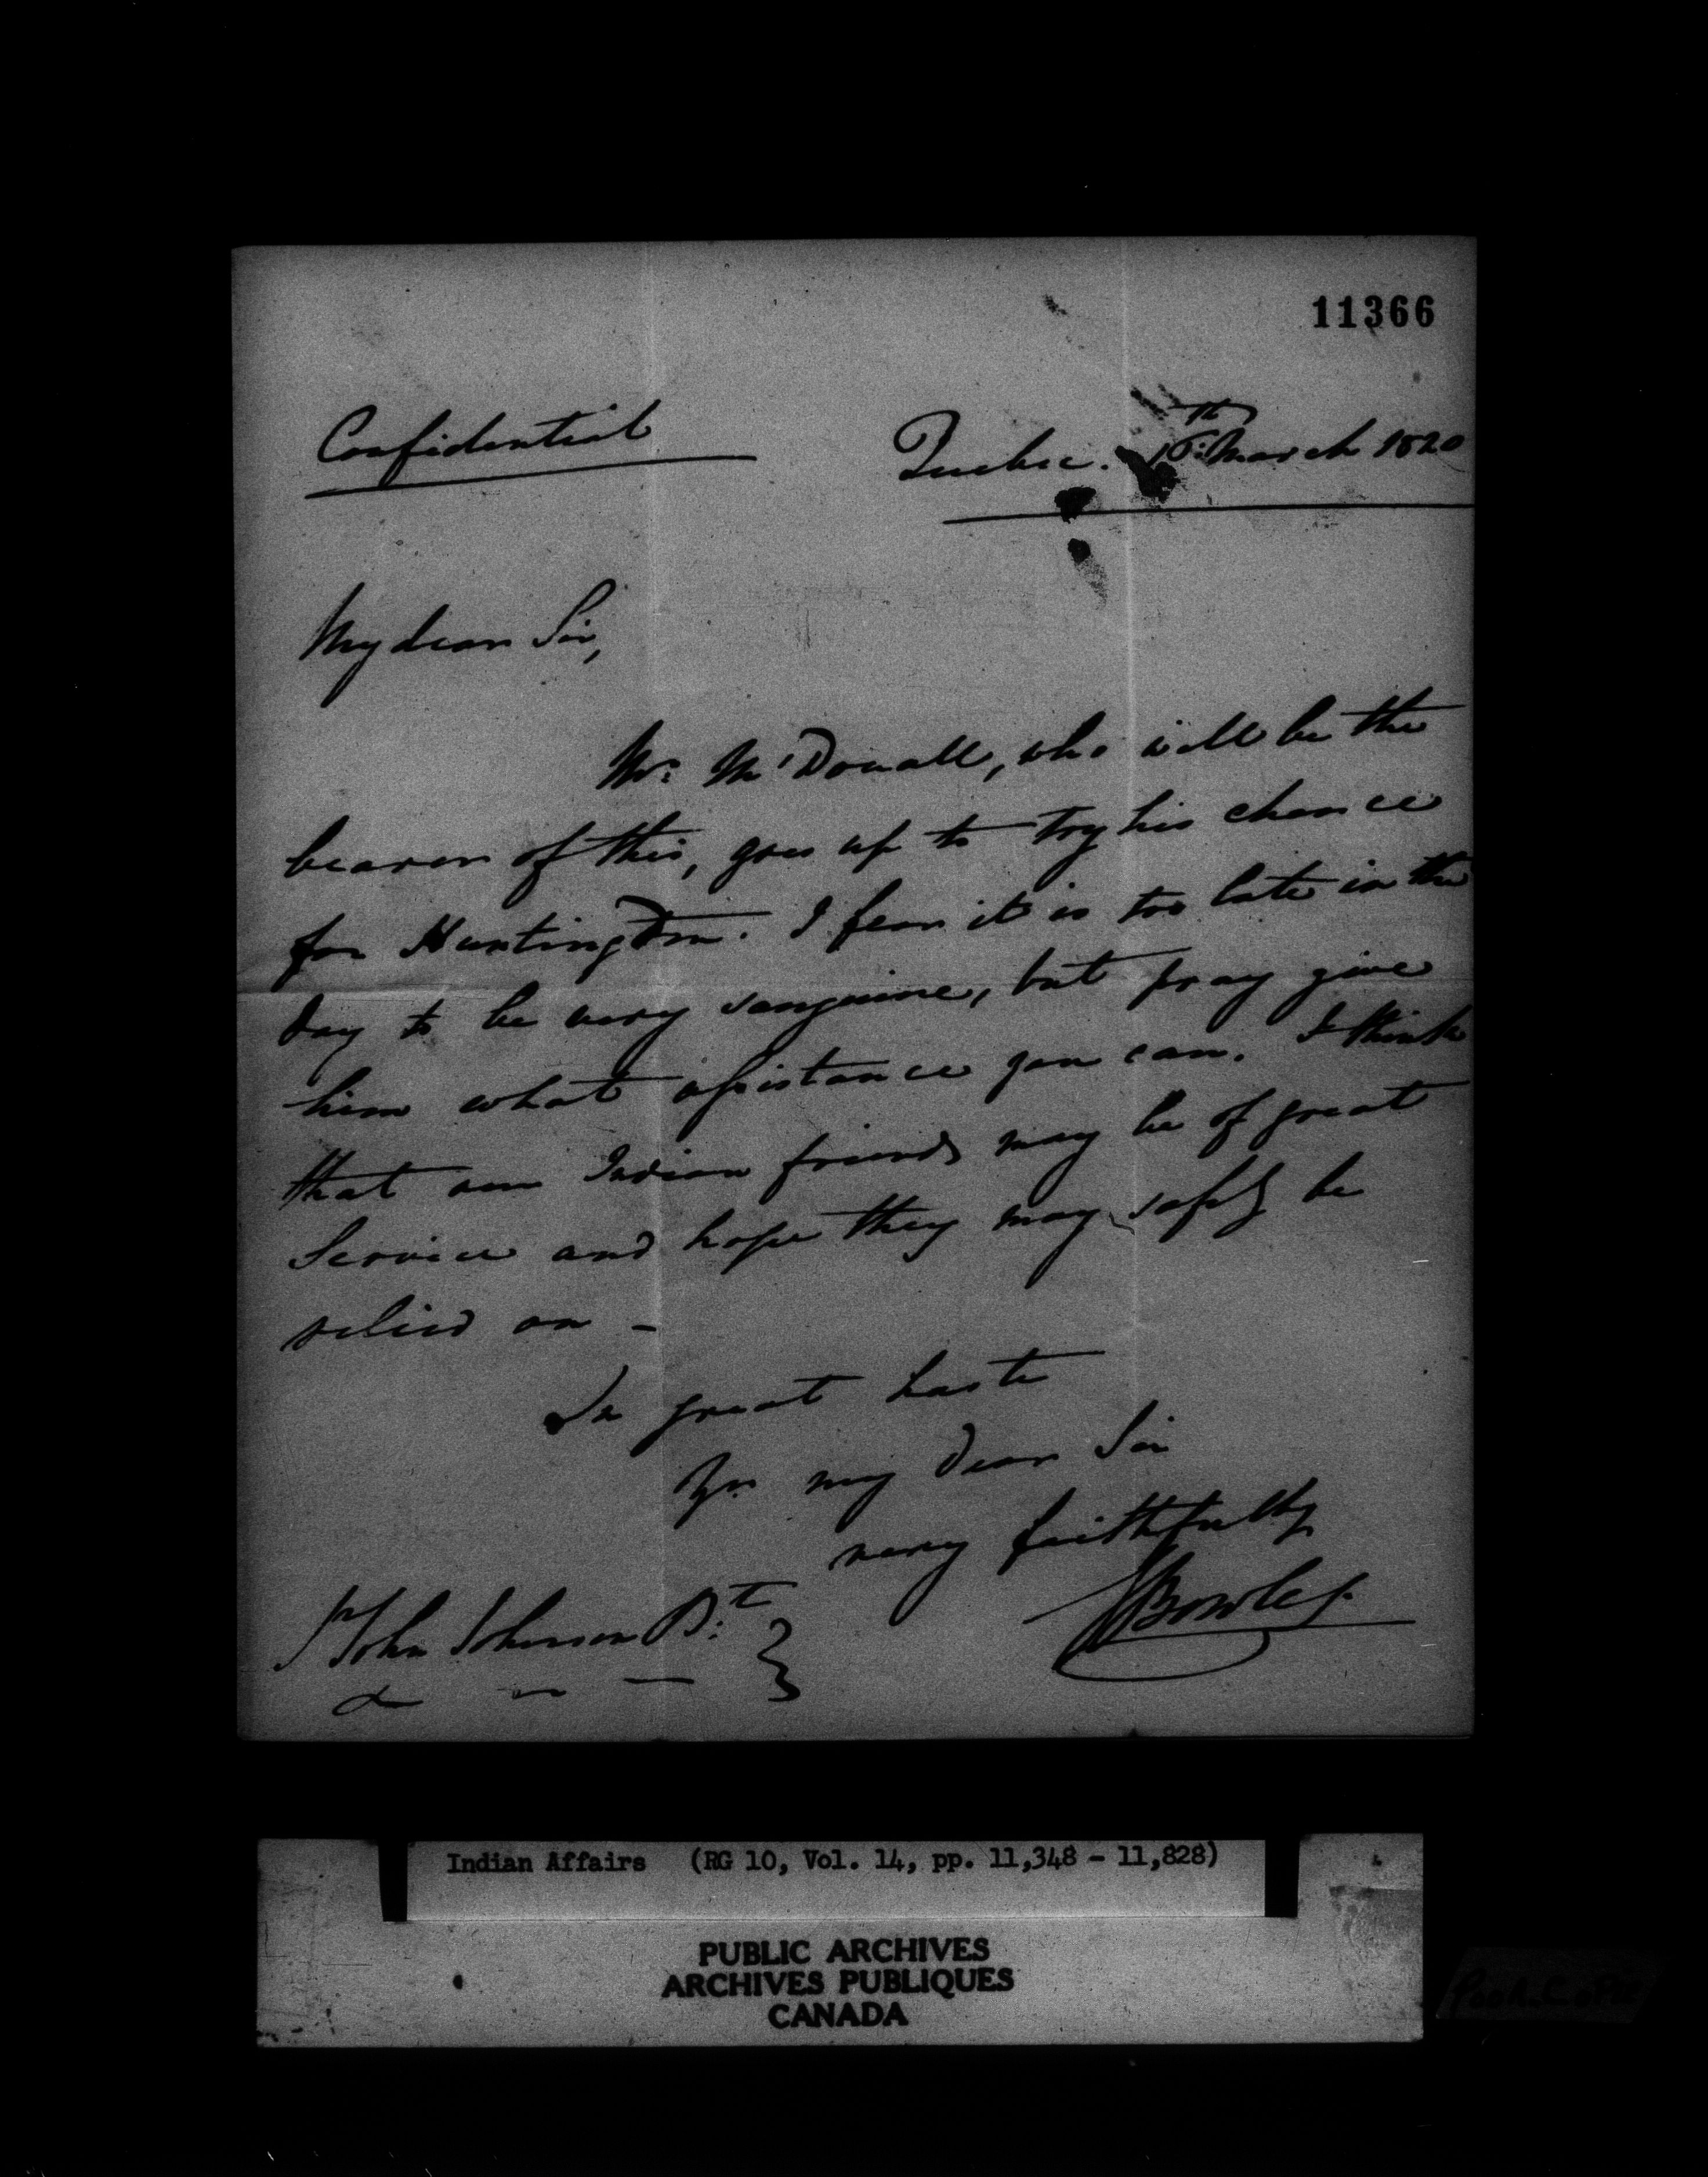 11366
Confidential
Quebec. March 1820
My dear Sir,
Mr. McDonall, who will be the
bearer of this, goes up to try his chance
for Huntingdon. I fear it is too late in the
day to be very sanguine, but pray give
him what assistance you can. I think
that our Indian friends may be of great
Service and hope they may safely be
relied on -
In great haste
Yrs. my dear Sir
very faithfully
Bowles.
Sr John Johnson Bt.
Indian Affairs (RG 10, Vol. 14, pp. 11,348 - 11,828)
PUBLIC ARCHIVES
ARCHIVES PUBLIQUES
CANADA